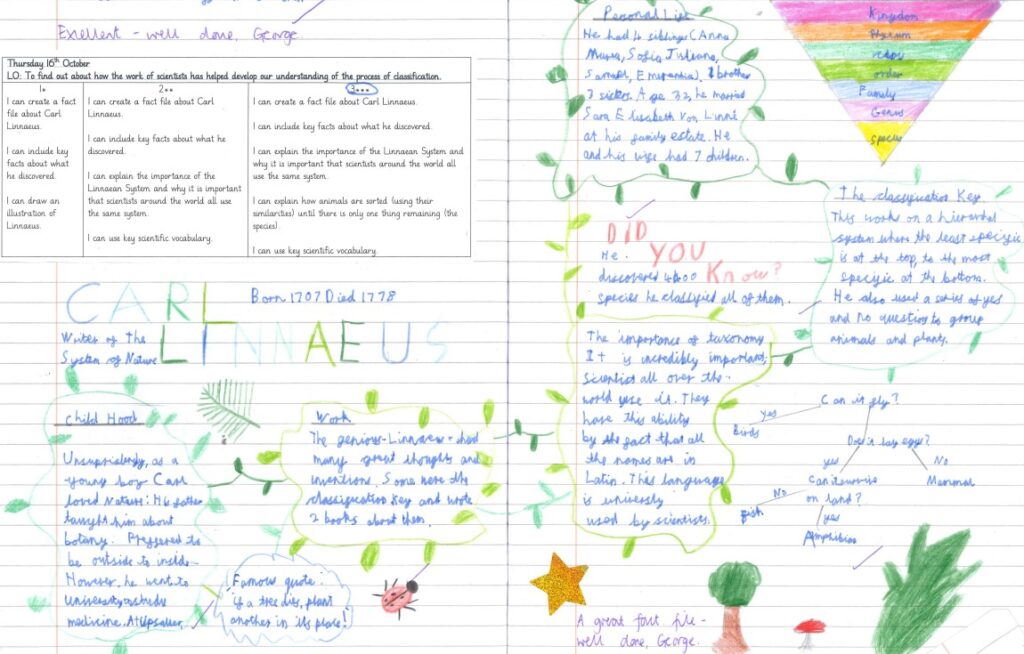 Exellent - well done, George.
Thursday 16th October
LO: To find out about how the work of scientists has helped develop our understanding of the process of classification.
1*
I can create a fact
file about Carl
Linnaeus.
I can include key
facts about what
he discovered.
I can draw an
illustration of
Linnaeus.
2**
I can create a fact file about Carl
Linnaeus.
I can include key facts about what he
discovered.
I can explain the importance of the
Linnaean System and why it is important
that scientists around the world all use
the same system.
I can use key scientific vocabulary.
3***
I can create a fact file about Carl Linnaeus.
I can include key facts about what he discovered.
I can explain the importance of the Linnaean System and
why it is important that scientists around the world all
use the same system.
I can explain how animals are sorted (using their
similarities) until there is only one thing remaining (the
species)
I can use key scientific vocabulary.
CARL
LINNAEUS
Born 1707 Died 1778
Writer of the
System of Nature
Child Hood
Unsuprislendy, as a
young boy Carl
loved Nature! His father
taught him about
botany. Preffered to
be outside to inside
However, he went to
University
medicine. At Upsaller,
Work
The genious-Linnaeus-had
many great thoughts and
inventions. Some were the
classification Key and wrote
2 books about them.
Famous quote:
if a tree dies, plant
another in its place!
Personal Life
He had 4 siblings (Anna
Maria, Sofia Juliana,
Samuel, Emerantia). 1 brother
3 sisters. Age 32, he married
Sara Elisabeth Von Linné
at his family estate. He
and his wife had 7 children.
Kingdom
Phylum
class
order
Family
Genus
species
DID
YOU
Know?
He
discovered 4400
species he classified all of them.
The classification Key
This works on a hierarchal
system where the least specific
is at the top, to the most
specific at the bottom.
He also used a series of yes
and no question to group
animals and plants.
The importance of taxonomy
It is incredibly important,
Scientist all over the
world use it. They
have this ability
by the fact that all
the names are in
Latin. This language
is universly
used by scientists.
Can it fly?
yes
Birds
Does it lay eggs?
yes
No
Mammal
Can it survive
on land?
No
fish
yes
Amphibian
A great fact file -
well done, George.